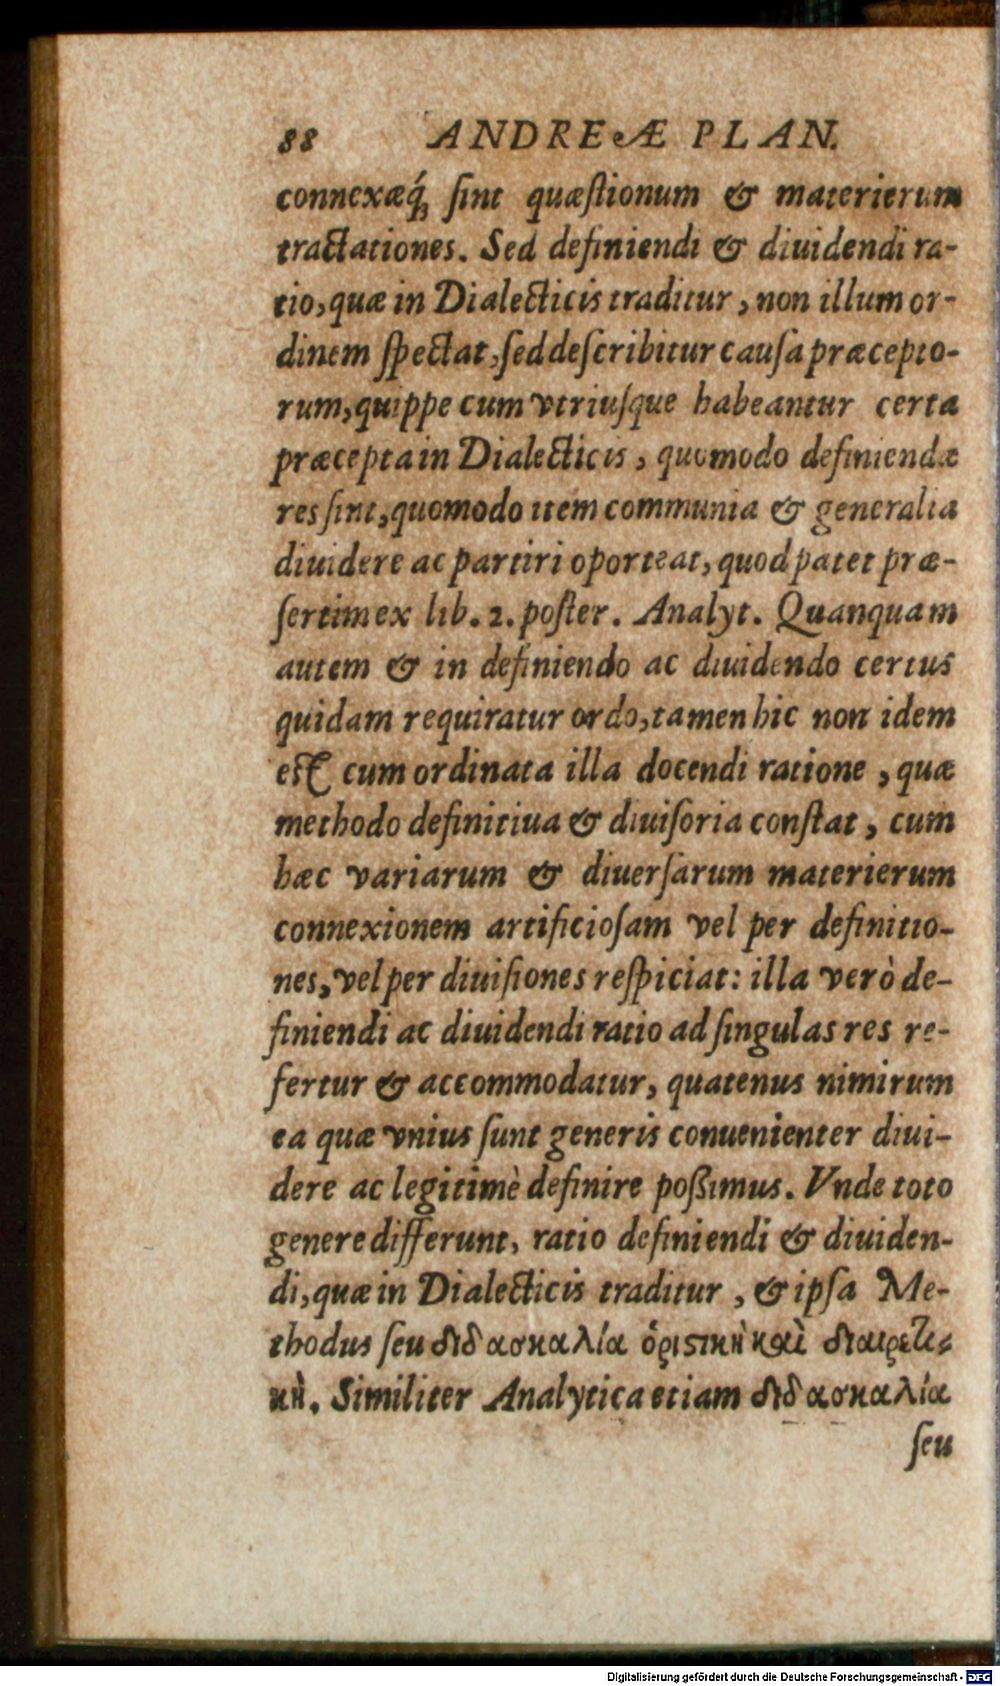 88 ANDREÆ PLAN.
connexæq́ꝫ ſint quæſtionum & materierum
tractationes. Sed definiendi & diuidendi ra-
tio, quæ in Dialecticis traditur, non illum or-
dinem ſpectat, ſed deſcribitur cauſa præcepto-
rum, quippe cum vtriuſque habeantur certa
præcepta in Dialecticis, quomodo definiendæ
res ſint, quomodo item communia & generalia
diuidere ac partiri oporteat, quod patet præ-
ſertim ex lib. 2. poſter. Analyt. Quanquam
autem & in definiendo ac diuidendo certus
quidam requiratur ordo, tamen hic non idem
eſt cum ordinata illa docendi ratione, quæ
methodo definitiua & diuiſoria conſtat, cum
hæc variarum & diuerſarum materierum
connexionem artificioſam vel per definitio-
nes, vel per diuiſiones reſpiciat: illa verò de-
finiendi ac diuidendi ratio ad ſingulas res re-
fertur & accommodatur, quatenus nimirum
ea quæ vnius ſunt generis conuenienter diui-
dere ac legitimè definire poßimus. Vnde toto
genere differunt, ratio definiendi & diuiden-
di, quæ in Dialecticis traditur, & ipſa Me-
thodus ſeu διδασκαλία ὁριστικὴ καὶ διαιρετι-
κὴ. Similiter Analytica etiam διδασκαλία
ſeu
Digitalisierung gefördert durch die Deutsche Forschungsgemeinschaft - DFG